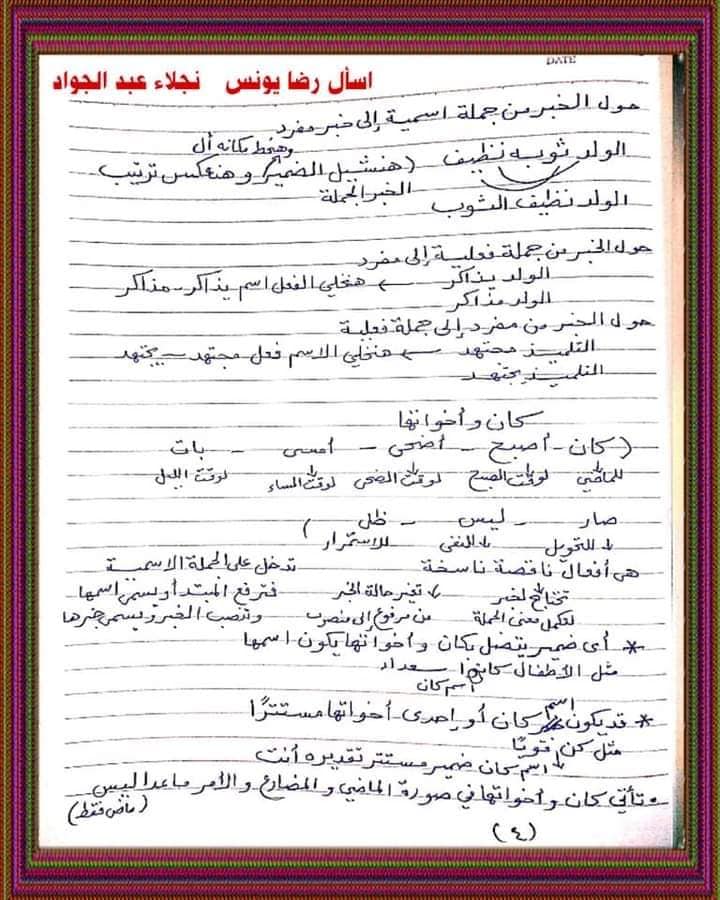 DATE
اسأل رضا يونس    نجلاء عبد الجواد
حول الخبر من جملة اسمية إلى خبر مفرد
وهنحط مكانه أل
الولد ثوبه نظيف (هنشيل الضمير وهنعكس ترتيب
الخبر الجملة
الولد نظيف الثوب
حول الخبر من جملة فعلية إلى مفرد
الولد يذاكر ← هنخلي الفعل اسم يذاكر - مذاكر
الولد مذاكر
حول الخبر من مفرد إلى جملة فعلية
التلميذ مجتهد ← هنخلي الاسم فعل مجتهد - يجتهد
التلميذ يجتهد
كان وأخواتها
(كان - أصبح - أضحى - أمسى - بات
للماضي لوقت الصبح لوقت الضحى لوقت المساء لوقت الليل
صار - ليس - ظل
للتحويل للنفى للاستمرار )
هى أفعال ناقصة ناسخة تدخل على الجملة الاسمية
تحتاج لخبر تغير حالة الخبر فترفع المبتدأ ويسمى اسمها
لتكمل معنى الجملة من مرفوع إلى منصوب وتنصب الخبر ويسمى خبرها
* أى ضمير يتصل بكان وأخواتها يكون اسمها
مثل الأطفال كانوا سعداء
اسم كان
* قد يكون اسم كان أو إحدى أخواتها مستترًا
مثل كن قويًا
اسم كان ضمير مستتر تقديره أنت
• تأتي كان وأخواتها في صورة الماضي والمضارع والأمر ماعدا ليس
(ماض فقط)
(٤)